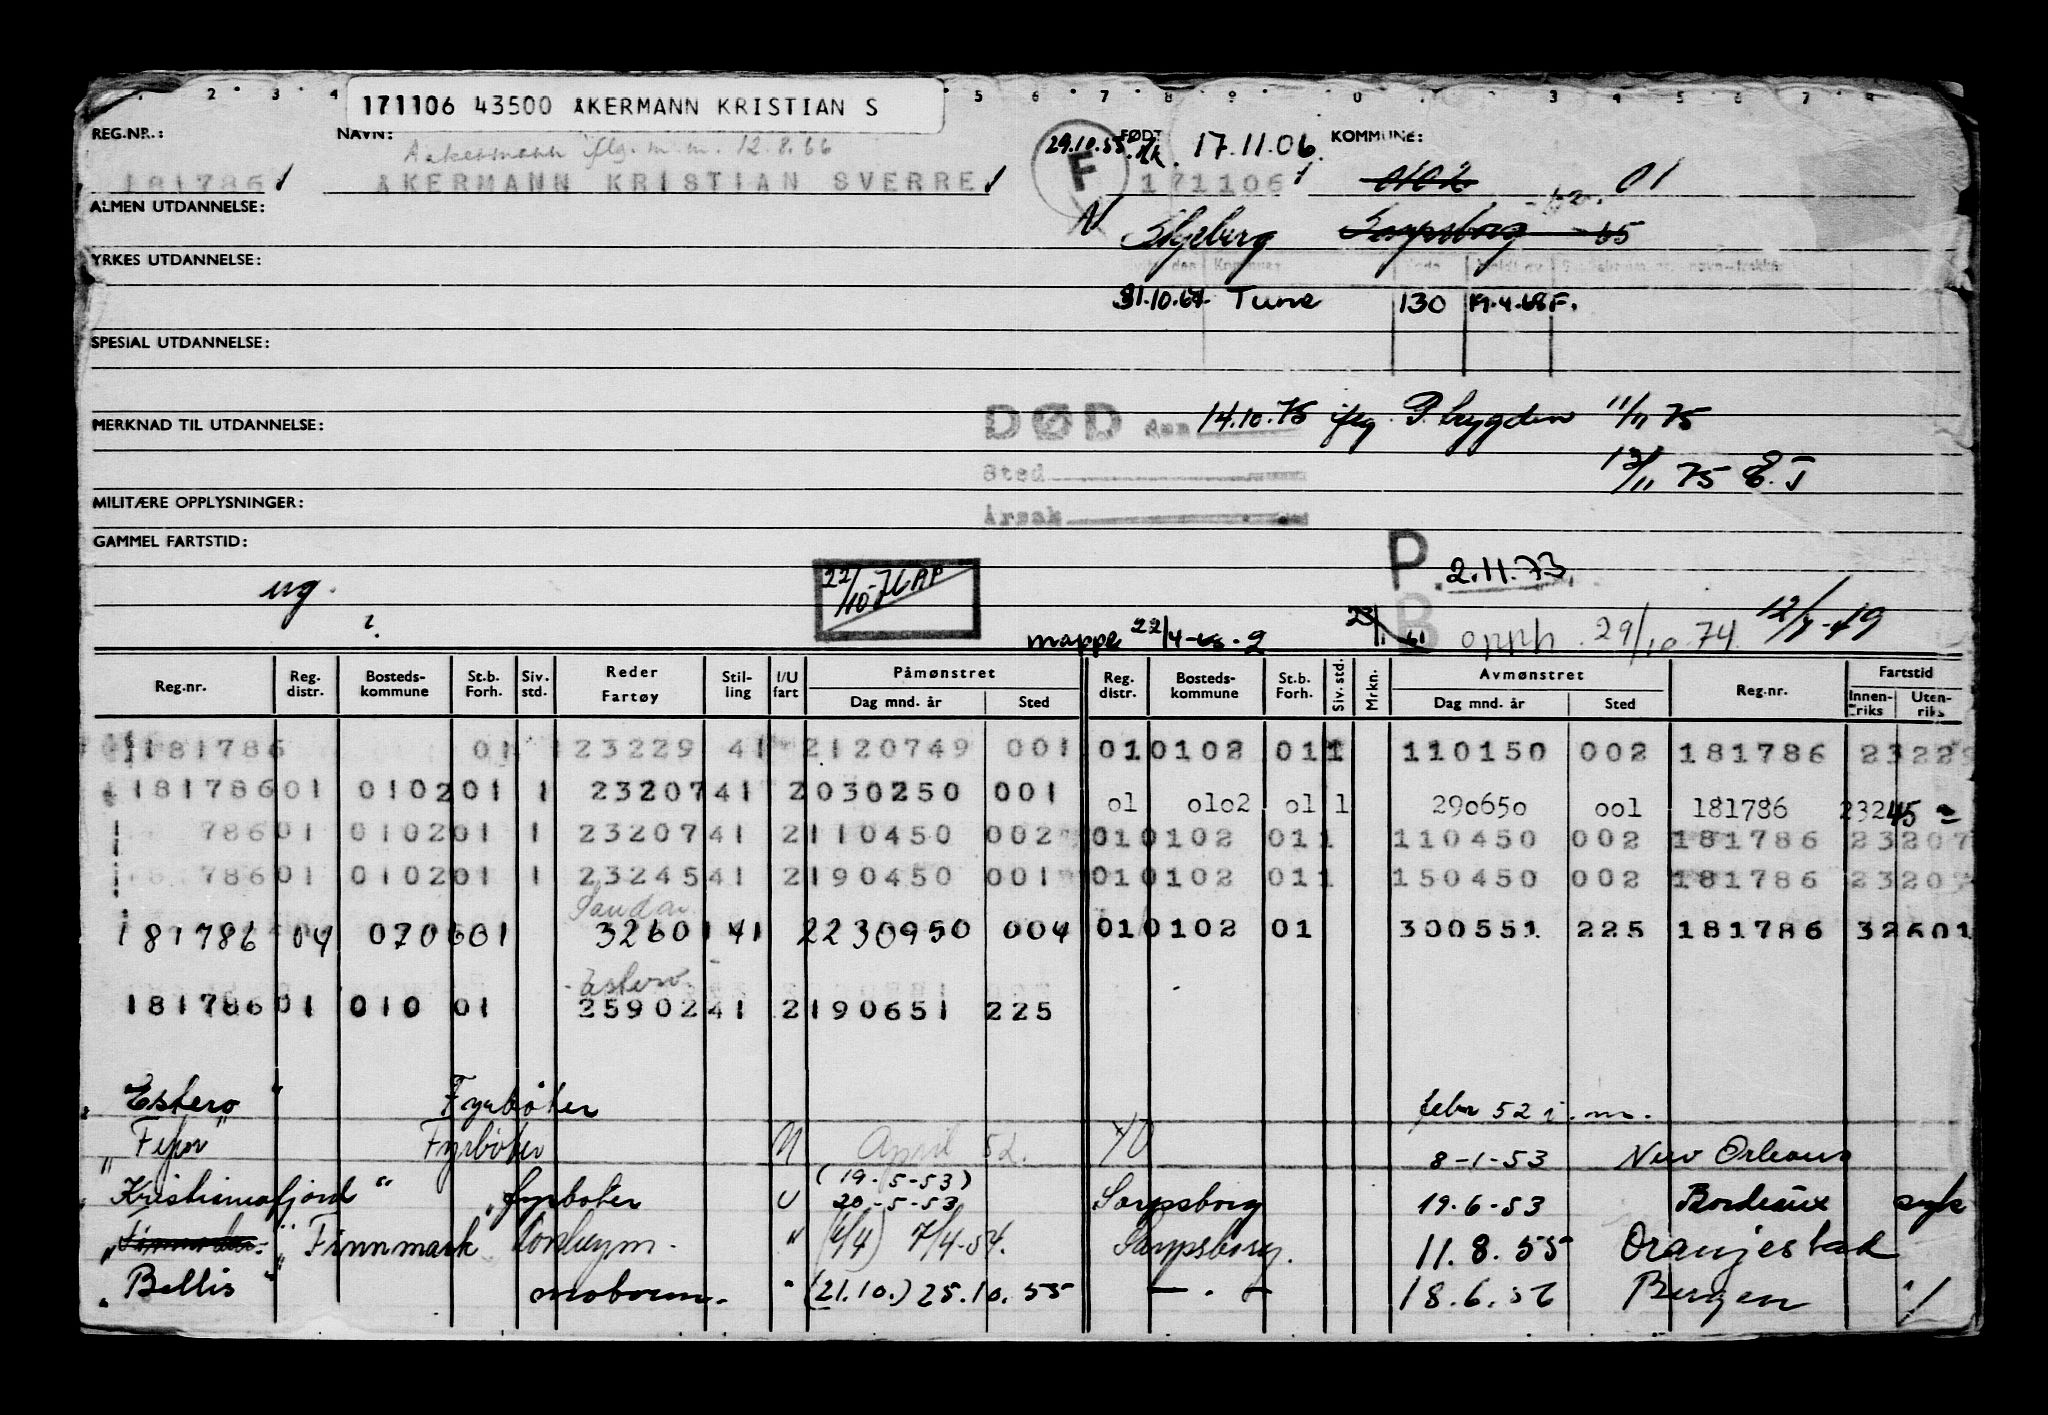 171106 43500 ÅKERMANN KRISTIAN S
REG.NR.: NAVN: FØDT 17.11.06. KOMMUNE:
Aakermann iflg. m.m. 12.8.66
29.10.55 F
181786 ÅKERMANN KRISTIAN SVERRE 171106 0102 01
ALMEN UTDANNELSE:
Skjeberg Sarpsborg 65
YRKES UTDANNELSE:
31.10.67 Tune 130 19.4.68 F.
SPESIAL UTDANNELSE:
DØD den 14.10.75 iflg. P. trygden 11/11 75
MERKNAD TIL UTDANNELSE:
Sted 13/11 75 E.J
MILITÆRE OPPLYSNINGER:
Årsak
GAMMEL FARTSTID:
P. 2.11.73.
ug. 22/10-76 AP
? mappe 22/4-68-9 23/1 61 B opph. 29/10 74. 12/8-49
Reg.nr. Reg. distr. Bosteds-kommune St.b. Forh. Siv. std. Reder Fartøy Stil-ling I/U fart Påmønstret Dag mnd. år Sted Reg. distr. Bosteds-kommune St.b. Forh. Siv. std. Mrkn. Avmønstret Dag mnd. år Sted Reg.nr. Fartstid Innen-riks Uten-riks
181786 01 23229 41 2 120749 001 01 0102 01 1 110150 002 181786 23229
181786 01 0102 01 1 23207 41 2 030250 001 01 0102 01 1 290650 001 181786 23245
786 01 0102 01 1 23207 41 2 110450 002 01 0102 01 1 110450 002 181786 23207
786 01 0102 01 1 23245 41 2 190450 001 01 0102 01 1 150450 002 181786 23207
Sandar
181786 04 0706 01 32601 41 2 230950 004 01 0102 01 300551 225 181786 32601
Estero
181786 01 010 01 25902 41 2 190651 225
" Estero " Fyrbøter febr 52 i.m.
" Fyrbøter U April 52. 8-1-53 New Orleans
(19-5-53)
" Kristianiafjord " fyrbøter U 20-5-53 Sarpsborg 19.6-53 Bordeaux syk
" Finnmark " (6/4) 7/4-54. Sarpsborg. 11.8.55 Oranjestad
" Bellis " " (21.10.) 25.10.55 — " — 18.6.56 Bergen "